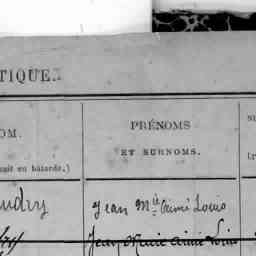 TIQUE.
OM.
PRÉNOMS
ET SURNOMS.
uit en bâtarde.)
udry
Jean Mie Aimé Louis
Jean Marie Aimé Louis